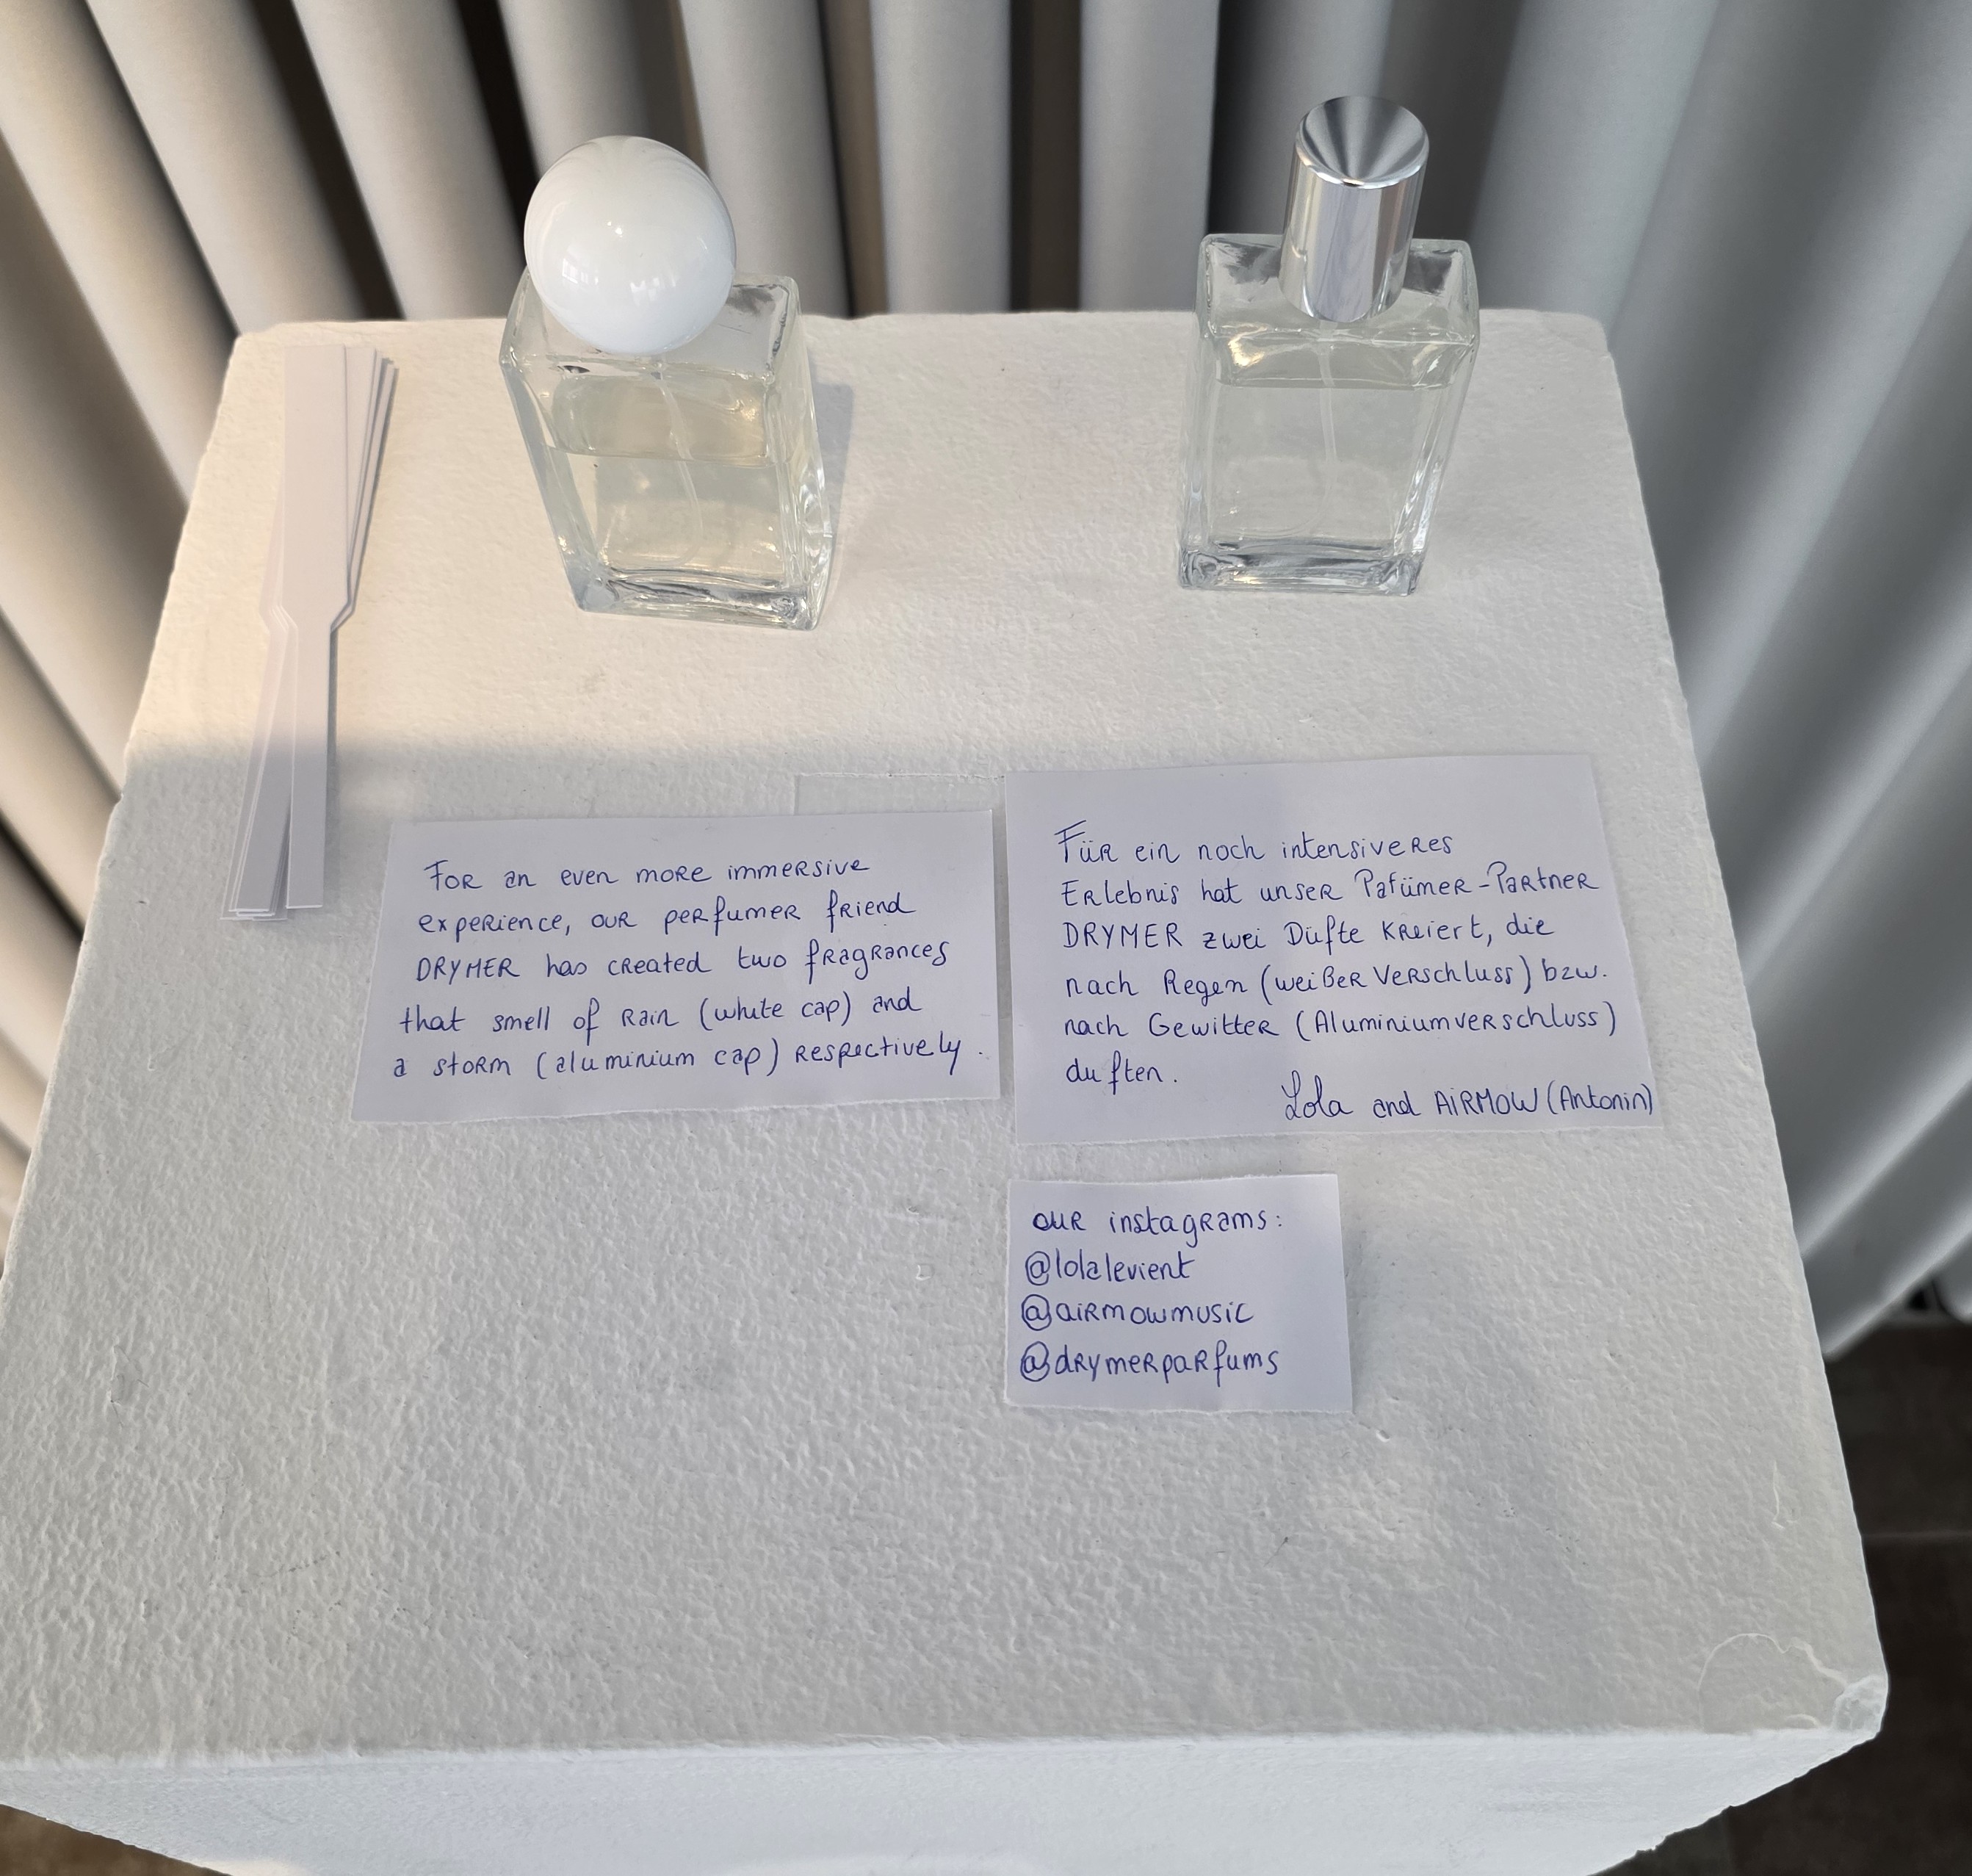 For an even more immersive
experience, our perfumer friend
DRYMER has created two fragrances
that smell of rain (white cap) and
a storm (aluminium cap) respectively.
Für ein noch intensiveres
Erlebnis hat unser Pafümer-Partner
DRYMER zwei Düfte kreiert, die
nach Regen (weißer Verschluss) bzw.
nach Gewitter (Aluminiumverschluss)
duften.
Lola and AIRMOW (Antonin)
our instagrams:
@lolalevient
@airmowmusic
@drymerparfums